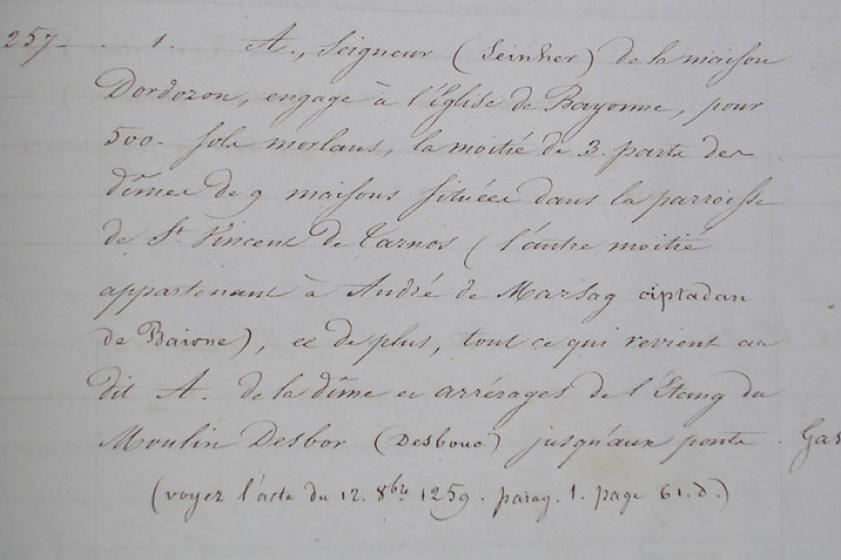 257 - . 1. A., Seigneur (Seinher) de la maison
Dordozon, engage à l'Eglise de Bayonne, pour
500. sols morlans, la moitié de 3. parts des
dîmes de 9 maisons situées dans la parroisse
de St. Vincent de Tarnos (l'autre moitié
appartenant à André de Marsag ciptadan
de Baione), et de plus, tout ce qui revient au
dit A. de la dîme et arrérages de l'Étang du
Moulin Desbor (Desbouc) jusqu'aux ponts. Gas
(voyez l'acte du 12. 8bre 1259. parag. 1. page 61. d.)